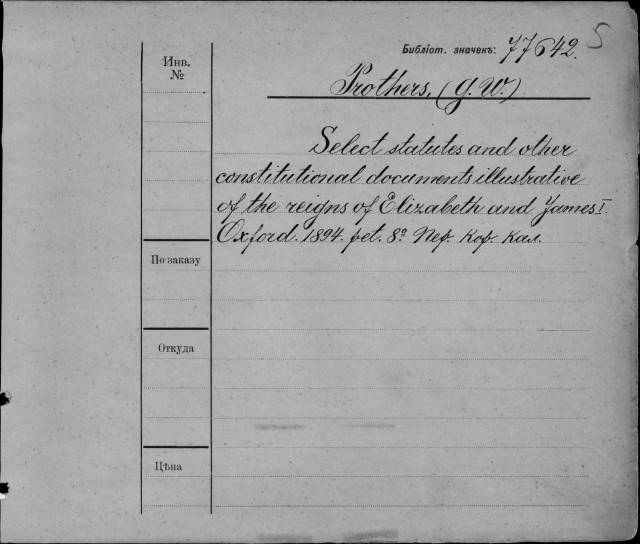 Библіот. значекъ: 77642. S
Инв.
№
Prothers, (G. W.)
Select statutes and other
constitutional documents illustrative
of the reigns of Elizabeth and James I.
Oxford. 1894. pet. 8º Пер. Кор. Кал.
По заказу
Откуда
Цѣна